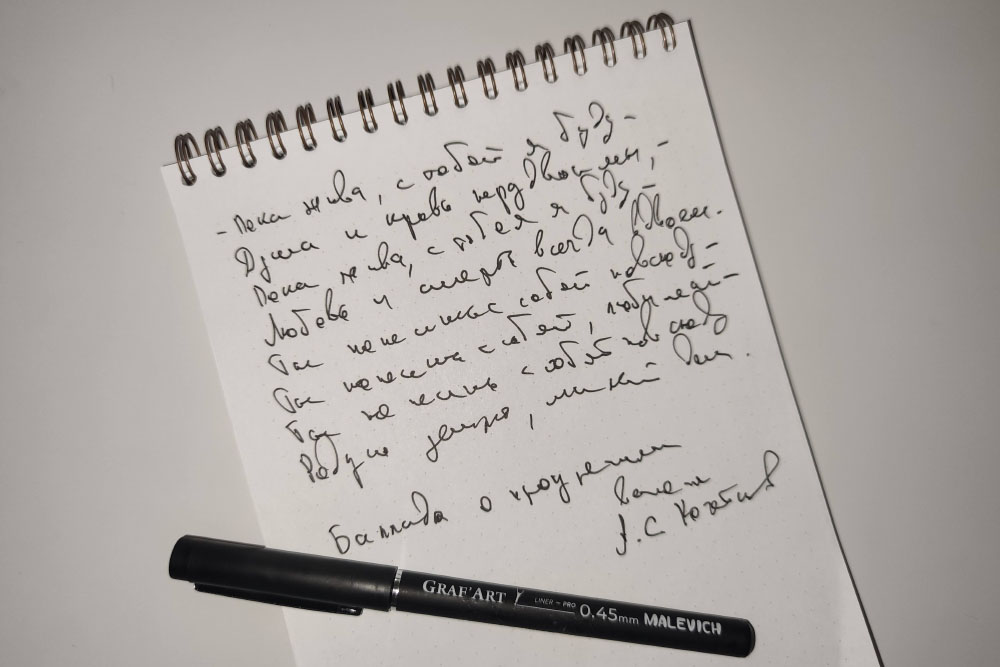 - Пока жива, с тобой я буду -
Душа и кровь нераздвоимы, -
Пока жива, с тобой я буду -
Любовь и смерть всегда вдвоем.
Ты понесешь с собой повсюду -
Ты понесешь с собой, любимый -
Ты понесешь с собой повсюду
Родную землю, милый дом.
Баллада о прокуренном
вагоне
А.С Кочетков
GRAF'ART LINER - PRO 0,45mm MALEVICH